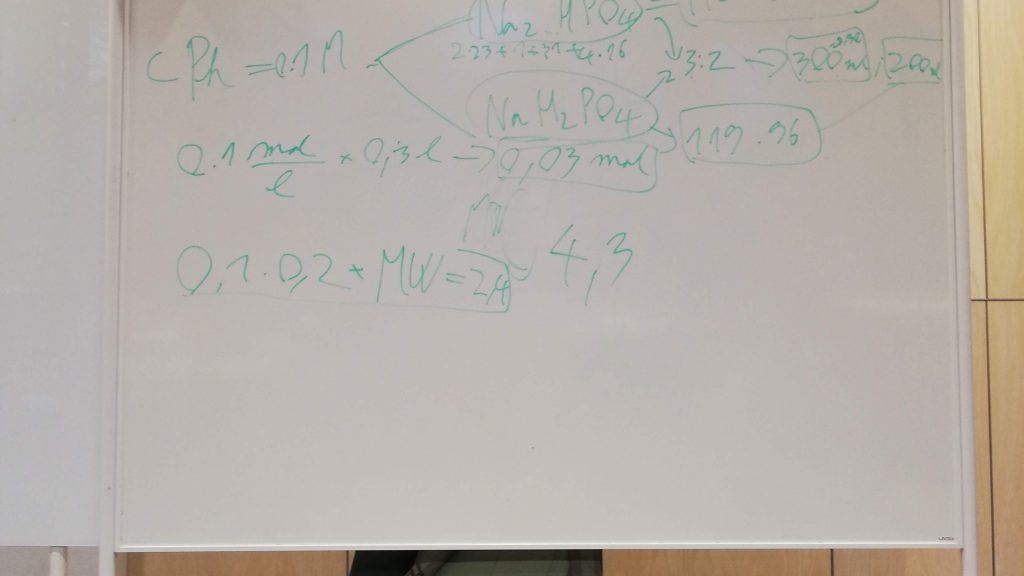 Na₂HPO₄ =
2·23+1+31+4·16
cPh = 0.1 M
3:2 → 300 ml, 200
NaH₂PO₄
119.96
0.1 mol/l × 0,3 l → 0,03 mol
MW
0,1·0,2 * MW = 2,4 4,3